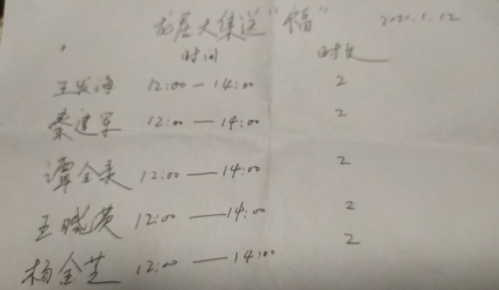 龙居大集送“福” 2020.1.12
时间 时长
王发海 12:00 — 14:00 2
秦建军 12:00 — 14:00 2
谭全美 12:00 — 14:00 2
王晓英 12:00 — 14:00 2
杨金芝 12:00 — 14:00 2